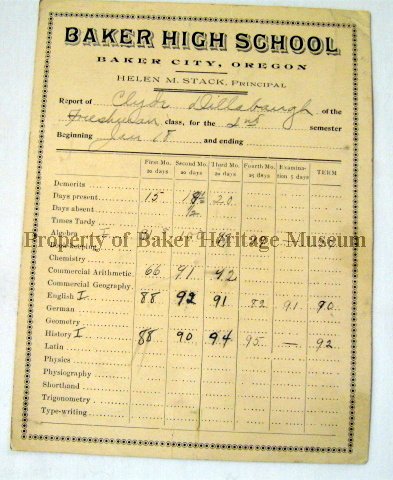 BAKER HIGH SCHOOL
BAKER CITY, OREGON
HELEN M. STACK, PRINCIPAL
Report of Clyde Dillabaugh of the
Freshman class, for the 2nd semester
Beginning Jan 18 and ending
First Mo. 20 days Second Mo. 20 days Third Mo. 20 days Fourth Mo. 25 days Examination 5 days TERM
Demerits
Days present 15 20
Days absent
Times Tardy
Algebra I
Property of Baker Heritage Museum
Chemistry
Commercial Arithmetic 66 91 92
Commercial Geography
English I 88 92 91 82 91 90
German
Geometry
History I 88 90 94 95 — 92
Latin
Physics
Physiography
Shorthand
Trigonometry
Type-writing